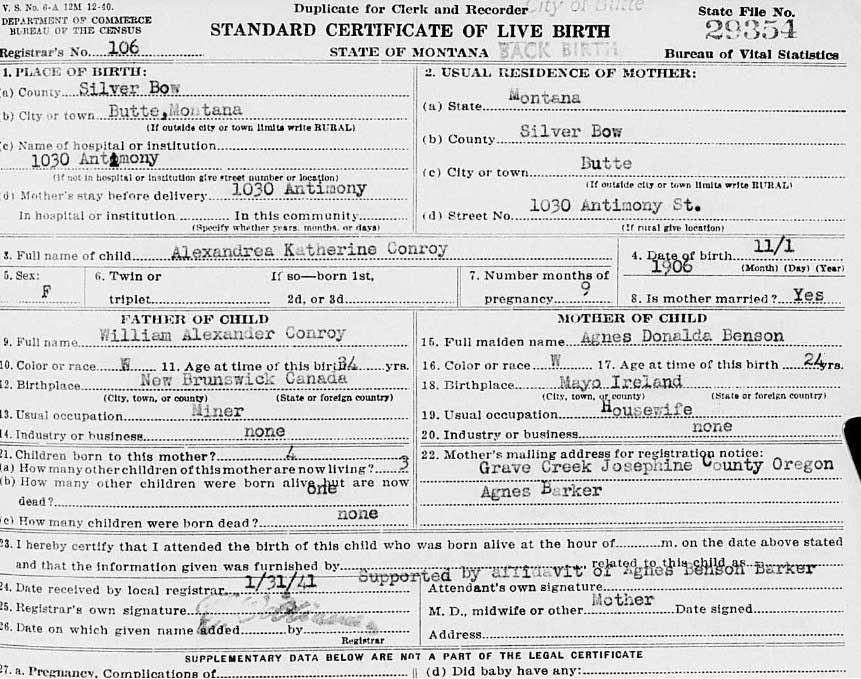 V. S. No. 6-A 12M 12-40.
DEPARTMENT OF COMMERCE
BUREAU OF THE CENSUS
Registrar's No. 106
Duplicate for Clerk and Recorder City of Butte
STANDARD CERTIFICATE OF LIVE BIRTH
STATE OF MONTANA BACK BIRTH
State File No.
29354
Bureau of Vital Statistics
1. PLACE OF BIRTH:
(a) County Silver Bow
(b) City or town Butte, Montana
(If outside city or town limits write RURAL)
(c) Name of hospital or institution
1030 Antimony
(If not in hospital or institution give street number or location)
(d) Mother's stay before delivery 1030 Antimony
In hospital or institution In this community
(Specify whether years, months, or days)
2. USUAL RESIDENCE OF MOTHER:
(a) State Montana
(b) County Silver Bow
(c) City or town Butte
(If outside city or town limits write RURAL)
(d) Street No. 1030 Antimony St.
(If rural give location)
3. Full name of child Alexandrea Katherine Conroy
4. Date of birth 11/1
1906 (Month) (Day) (Year)
5. Sex:
F
6. Twin or If so—born 1st,
triplet 2d, or 3d
7. Number months of
pregnancy 9
8. Is mother married? Yes
FATHER OF CHILD
9. Full name William Alexander Conroy
10. Color or race W 11. Age at time of this birth 34 yrs.
12. Birthplace New Brunswick Canada
(City, town, or county) (State or foreign country)
13. Usual occupation Miner
14. Industry or business none
MOTHER OF CHILD
15. Full maiden name Agnes Donalda Benson
16. Color or race W 17. Age at time of this birth 24 yrs.
18. Birthplace Mayo Ireland
(City, town, or county) (State or foreign country)
19. Usual occupation Housewife
20. Industry or business none
21. Children born to this mother? 4
(a) How many other children of this mother are now living? 3
(b) How many other children were born alive but are now
dead? one
(c) How many children were born dead? none
22. Mother's mailing address for registration notice:
Grave Creek Josephine County Oregon
Agnes Barker
23. I hereby certify that I attended the birth of this child who was born alive at the hour of m. on the date above stated
and that the information given was furnished by , related to this child as
Supported by affidavit of Agnes Benson Barker
24. Date received by local registrar 1/31/41
25. Registrar's own signature
26. Date on which given name added by
Registrar
Attendant's own signature
M. D., midwife or other Mother Date signed
Address
SUPPLEMENTARY DATA BELOW ARE NOT A PART OF THE LEGAL CERTIFICATE
27. a. Pregnancy, Complications of (d) Did baby have any: